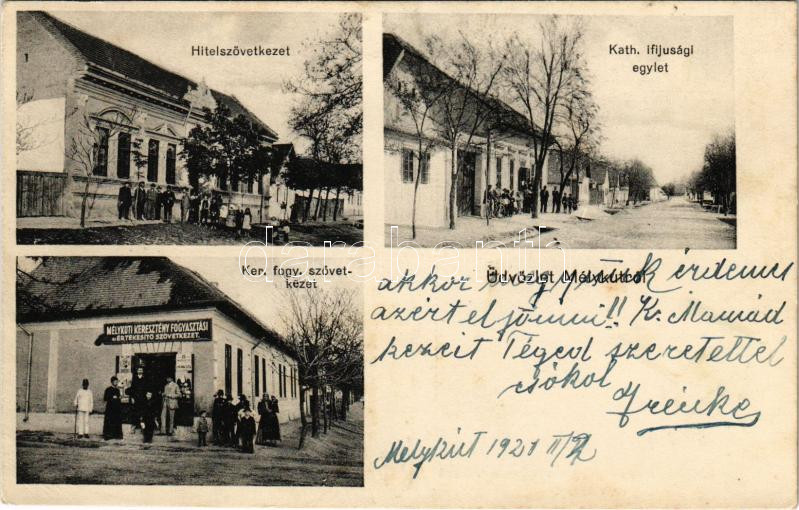 Hitelszövetkezet
Kath. ifijusági
egylet
Ker. fogy. szövet-
kezet
MÉLYKUTI KERESZTÉNY FOGYASZTÁSI
ÉS ÉRTÉKESITŐ SZÖVETKEZET.
Üdvözlet Mélykútról
akkor érdemes
azért eljönni!! K. Mamád
kezeit Téged szeretettel
csókol
Irénke
Mélykút 1921 II/
darabanth